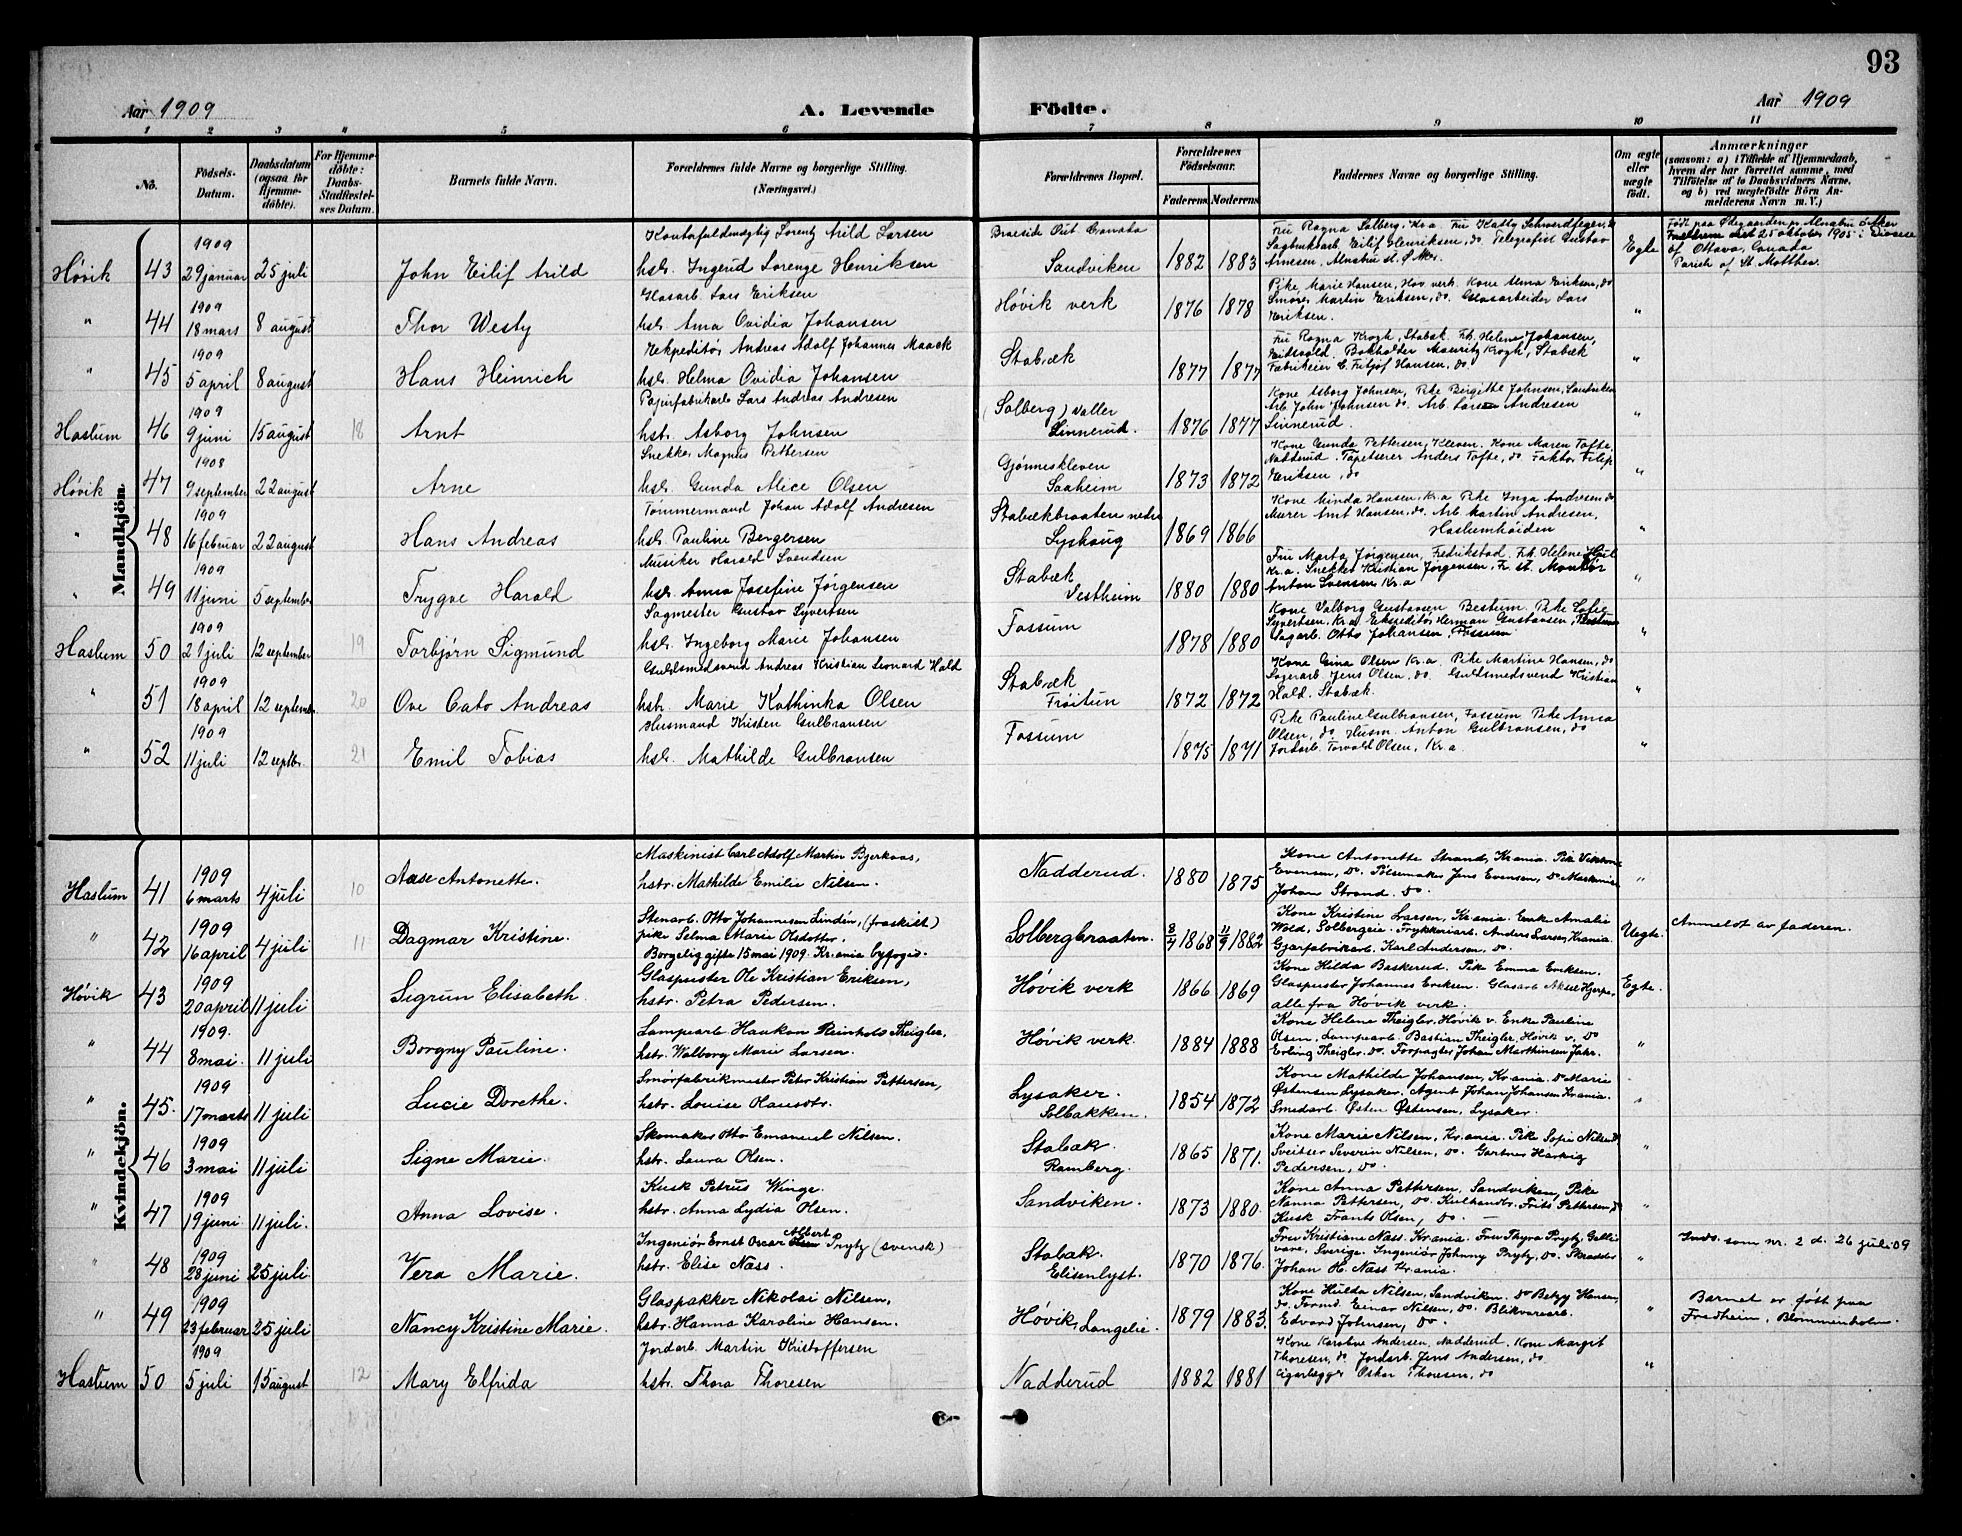 93
Aar 1909
A. Levende
Födte.
Aar 1909
1 2 3 4 5 6 7 8 9 10 11
No.
Födsels-
Datum.
Daabsdatum
(ogsaa for
Hjemme-
döbte).
For Hjemme-
döbte:
Daabs-
Stadfæstel-
ses Datum.
Barnets fulde Navn.
Forældrenes fulde Navne og borgerlige Stilling.
(Næringsvei.)
Forældrenes Bopæl.
Forældrenes
Födselsaar.
Faderens. Moderens.
Faddernes Navne og borgerlige Stilling.
Om ægte
eller
uægte
födt.
Anmærkninger
(saasom: a) i Tilfælde af Hjemmedaab,
hvem der har forrettet samme, med
Tilföielse af to Daabsvidners Navne,
og b) ved uægtefödte Börn An-
melderens Navn m. V.)
Mandkjön.
Høvik 43 1909 29 januar 25 juli
John Eilif Arild
Kontorfuldmægtig Lorentz Arild Larsen
hstr. Ingerud Lorenze Henriksen
Braeside Out Canada
Sandviken
1882 1883
Fru Ragna Solberg, Kr.a. Fru Katty
Sagbruksarb. Eilif Henriksen, do. Telegrafist Gustav
Arnesen, Alnabru st. Ø. Aker.
Egte
25 oktober 1905 i Diocese
of Ottava, Canada
Parish of St. Matthew
" 44 1909 18 mars 8 august
Thor Westy
Glasarb. Lars Eriksen
hstr. Anna Ovidia Johansen
Høvik verk
1876 1878
Pike, Marie Hansen, Høv. verk. Kone Alma Eriksen, do
Smører Martin Eriksen, do. Glasarbeider Lars
Eriksen.
"
" 45 1909 5 april 8 august
Hans Heinrich
Ekspeditør Andreas Adolf Johannes Maack
hstr. Helma Ovidia Johansen
Stabæk
1877 1877
Fru Ragna Krogh, Stabæk. Frk. Helene Johansen,
Eidsvold. Bokholder Mauritz Krogh, Stabæk
Fabrikeier C. Fritjof Hansen, do.
"
Haslum 46 1909 9 juni 15 august 18
Arnt
Papirfabrikarb. Lars Andreas Andresen
hstr. Asborg Johnsen
(Solberg) Valler
Sinnerud.
1876 1877
Kone Asborg Johnsen, Pike Birgitte Johnsen, Sandviken
Arb. John Johnsen do. Arb. Larsen Andresen
Sinnerud.
"
Høvik 47 1908 9 september 22 august
Arne
Snekker Magnus Pettersen
hstr. Gunda Alice Olsen
Gjønneskleven
Saaheim
1873 1872
Kone Gunda Pettersen, Kleven. Kone Maren Tofte,
Nadderud. Tapetserer Anders Tofte, do. Faktor Filip
Eriksen, do
"
" 48 1909 16 februar 22 august
Hans Andreas
Tømmermand Johan Adolf Andresen
hstr. Pauline Bergersen
Stabækbraaten nedre
Lyshaug
1869 1866
Kone Minda Hansen, Kr.a Pike Inga Andresen do
Murer Arnt Hansen, do. Arb. Martin Andresen,
Haslumhøiden
"
" 49 1909 11 juni 5 september
Trygve Harald
Musiker Harald Svendsen
hstr. Anna Josefine Jørgensen
Stabæk
Vestheim
1880 1880
Fru Marta Jørgensen, Fredrikstad. Frk. Helene
Kr.a. Snekker Kristian Jørgensen, Fr. st. Montør
Anton Svensen, Kr.a
"
Haslum 50 1909 21 juli 12 september 19
Torbjørn Sigmund
Sagmester Gustav Syvertsen
hstr. Ingeborg Marie Johansen
Fossum
1878 1880
Kone Valborg Gustavsen Bestum. Pike Sofie
Syvertsen, Kr.a. Ekspeditør Herman Gustavsen, Bestum
Sagarb. Otto Johansen, Fossum
"
" 51 1909 18 april 12 september 20
Ove Cato Andreas
Guldsmedsvend Andreas Kristian Leonard Hald
hstr. Marie Kathinka Olsen
Stabæk
Frøitun
1872 1872
Kone Gina Olsen Kr.a. Pike Martine Hansen, do
Sagarb. Jens Olsen, do. Guldsmedsvend Kristian
Hald. Stabæk.
"
" 52 1909 11 juli 12 septbr. 21
Emil Tobias
Husmand Kristen Gulbransen
hstr. Mathilde Gulbransen
Fossum
1875 1871
Pike Pauline Gulbransen, Fossum Pike Anna
Olsen, do. Husm. Anton Gulbransen, do
Jordarb. Torvald Olsen, Kr.a.
"
Kvindekjön.
Haslum 41 1909 6 marts 4 juli 10
Aase Antonette.
Maskinist Carl Adolf Martin Bjerkaas,
hstr. Mathilde Emilie Nilsen.
Nadderud.
1880 1875
Kone Antonette Strand, Kr.ania. Pike
Evensen, do. Pølsemaker Jens Evensen, do Maskinist
Johan Strand. do.
"
" 42 1909 16 april 4 juli 11
Dagmar Kristine.
Stenarb. Otto Johannesen Lindén, (fraskilt)
pike Selma Marie Olsdotter.
Borgelig gifte 15 mai 1909. Kr.ania byfoged.
Solbergbraaten.
3/4 1868 11/9 1882
Kone Kristine Larsen, Kr.ania. Enke Amalie
Wold, Solbergeie. Trykkeriarb. Anders Larsen, Kr.ania
Gjørfabrikarb. Karl Andersen, do.
Uegte.
Anmeldt av faderen.
Høvik 43 1909 20 april 11 juli
Sigrun Elisabeth.
Glaspuster Ole Kristian Eriksen,
hstr. Petra Pedersen.
Høvik verk
1866 1869
Kone Hilda Baskerud. Pike Emma Eriksen.
Glaspuster Johannes Eriksen. Glasarb. Aksel Hjerpe,
alle fra Høvik verk.
Egte.
" 44 1909. 8 mai. 11 juli
Borgny Pauline.
Lampearb. Haakon Reinholt Theigler.
hstr. Walborg Marie Larsen.
Høvik verk.
1884 1888
Kone Helene Theigler, Høvik v. Enke Pauline
Olsen, Lampearb. Bastian Theigler, Høvik v. do
Erling Theigler. do. Forpagter Johan Marthinsen Jahr.
"
" 45. 1909 17 marts 11 juli
Lucie Dorethe.
Smørfabrikmester Peter Kristian Pettersen,
hstr. Louise Hansdtr.
Lysaker.
Solbakken.
1854 1872
Kone Mathilde Johansen, Kr.ania. do Marie
Østensen Lysaker. Agent Johan Johansen Kr.ania.
Smedarb. Østen Østensen, Lysaker.
"
" 46 1909 3 mai 11 juli
Signe Marie.
Skomaker Otto Emanuel Nilsen.
hstr. Laura Olsen.
Stabæk.
Ramberg.
1865 1871.
Kone Marie Nilsen, Kr.ania. Pike Sofie Nilsen do
Sveitser Severin Nilsen, do. Gartner Hartvig
Pedersen, do.
"
" 47 1909 19 juni 11 juli.
Anna Lovise.
Kusk Petrus Winge.
hstr. Anna Lydia Olsen.
Sandviken.
1873 1880.
Kone Anna Pettersen, Sandviken, Pike
Nanna Pettersen, do. Kulhandl. Frits Pettersen, do
Kusk Frants Olsen, do.
"
" 48 1909 28 juni 25 juli
Vera Marie.
Ingeniør Ernst Oscar Albert Prytz (svensk)
hstr. Elise Nass.
Stabæk.
Elisenlyst.
1870 1876.
Fru Kristiane Nass. Kr.ania. Fru Thyra Prytz, Galli
vare, Sverige. Ingeniør Johnny Prytz, do. Skrædder
Johan H. Nass Kr.ania.
"
Inds. som nr. 2 d. 26 juli 09
" 49 1909 23 februar 25 juli
Nancy Kristine Marie.
Glaspakker Nikolai Nilsen,
hstr. Hanna Karoline Hansen.
Høvik, Langelie.
1879 1883.
Kone Hulda Nilsen, Sandviken. do Betzy Hansen,
do. Formd. Einar Nilsen, do. Blikvarearb.
Edvard Johnsen, do.
"
Barnet er født paa
Fredheim, Blommenholm.
Haslum 50 1909 5 juli 15 august 12
Mary Elfrida
Jordarb. Martin Kristoffersen
hstr. Thora Thoresen
Nadderud
1882 1881
Kone Karoline Andersen, Nadderud. Kone Margit
Thoresen, do. Jordarb. Jens Andersen, do.
Cigarlægger Oskar Thoresen, do
"